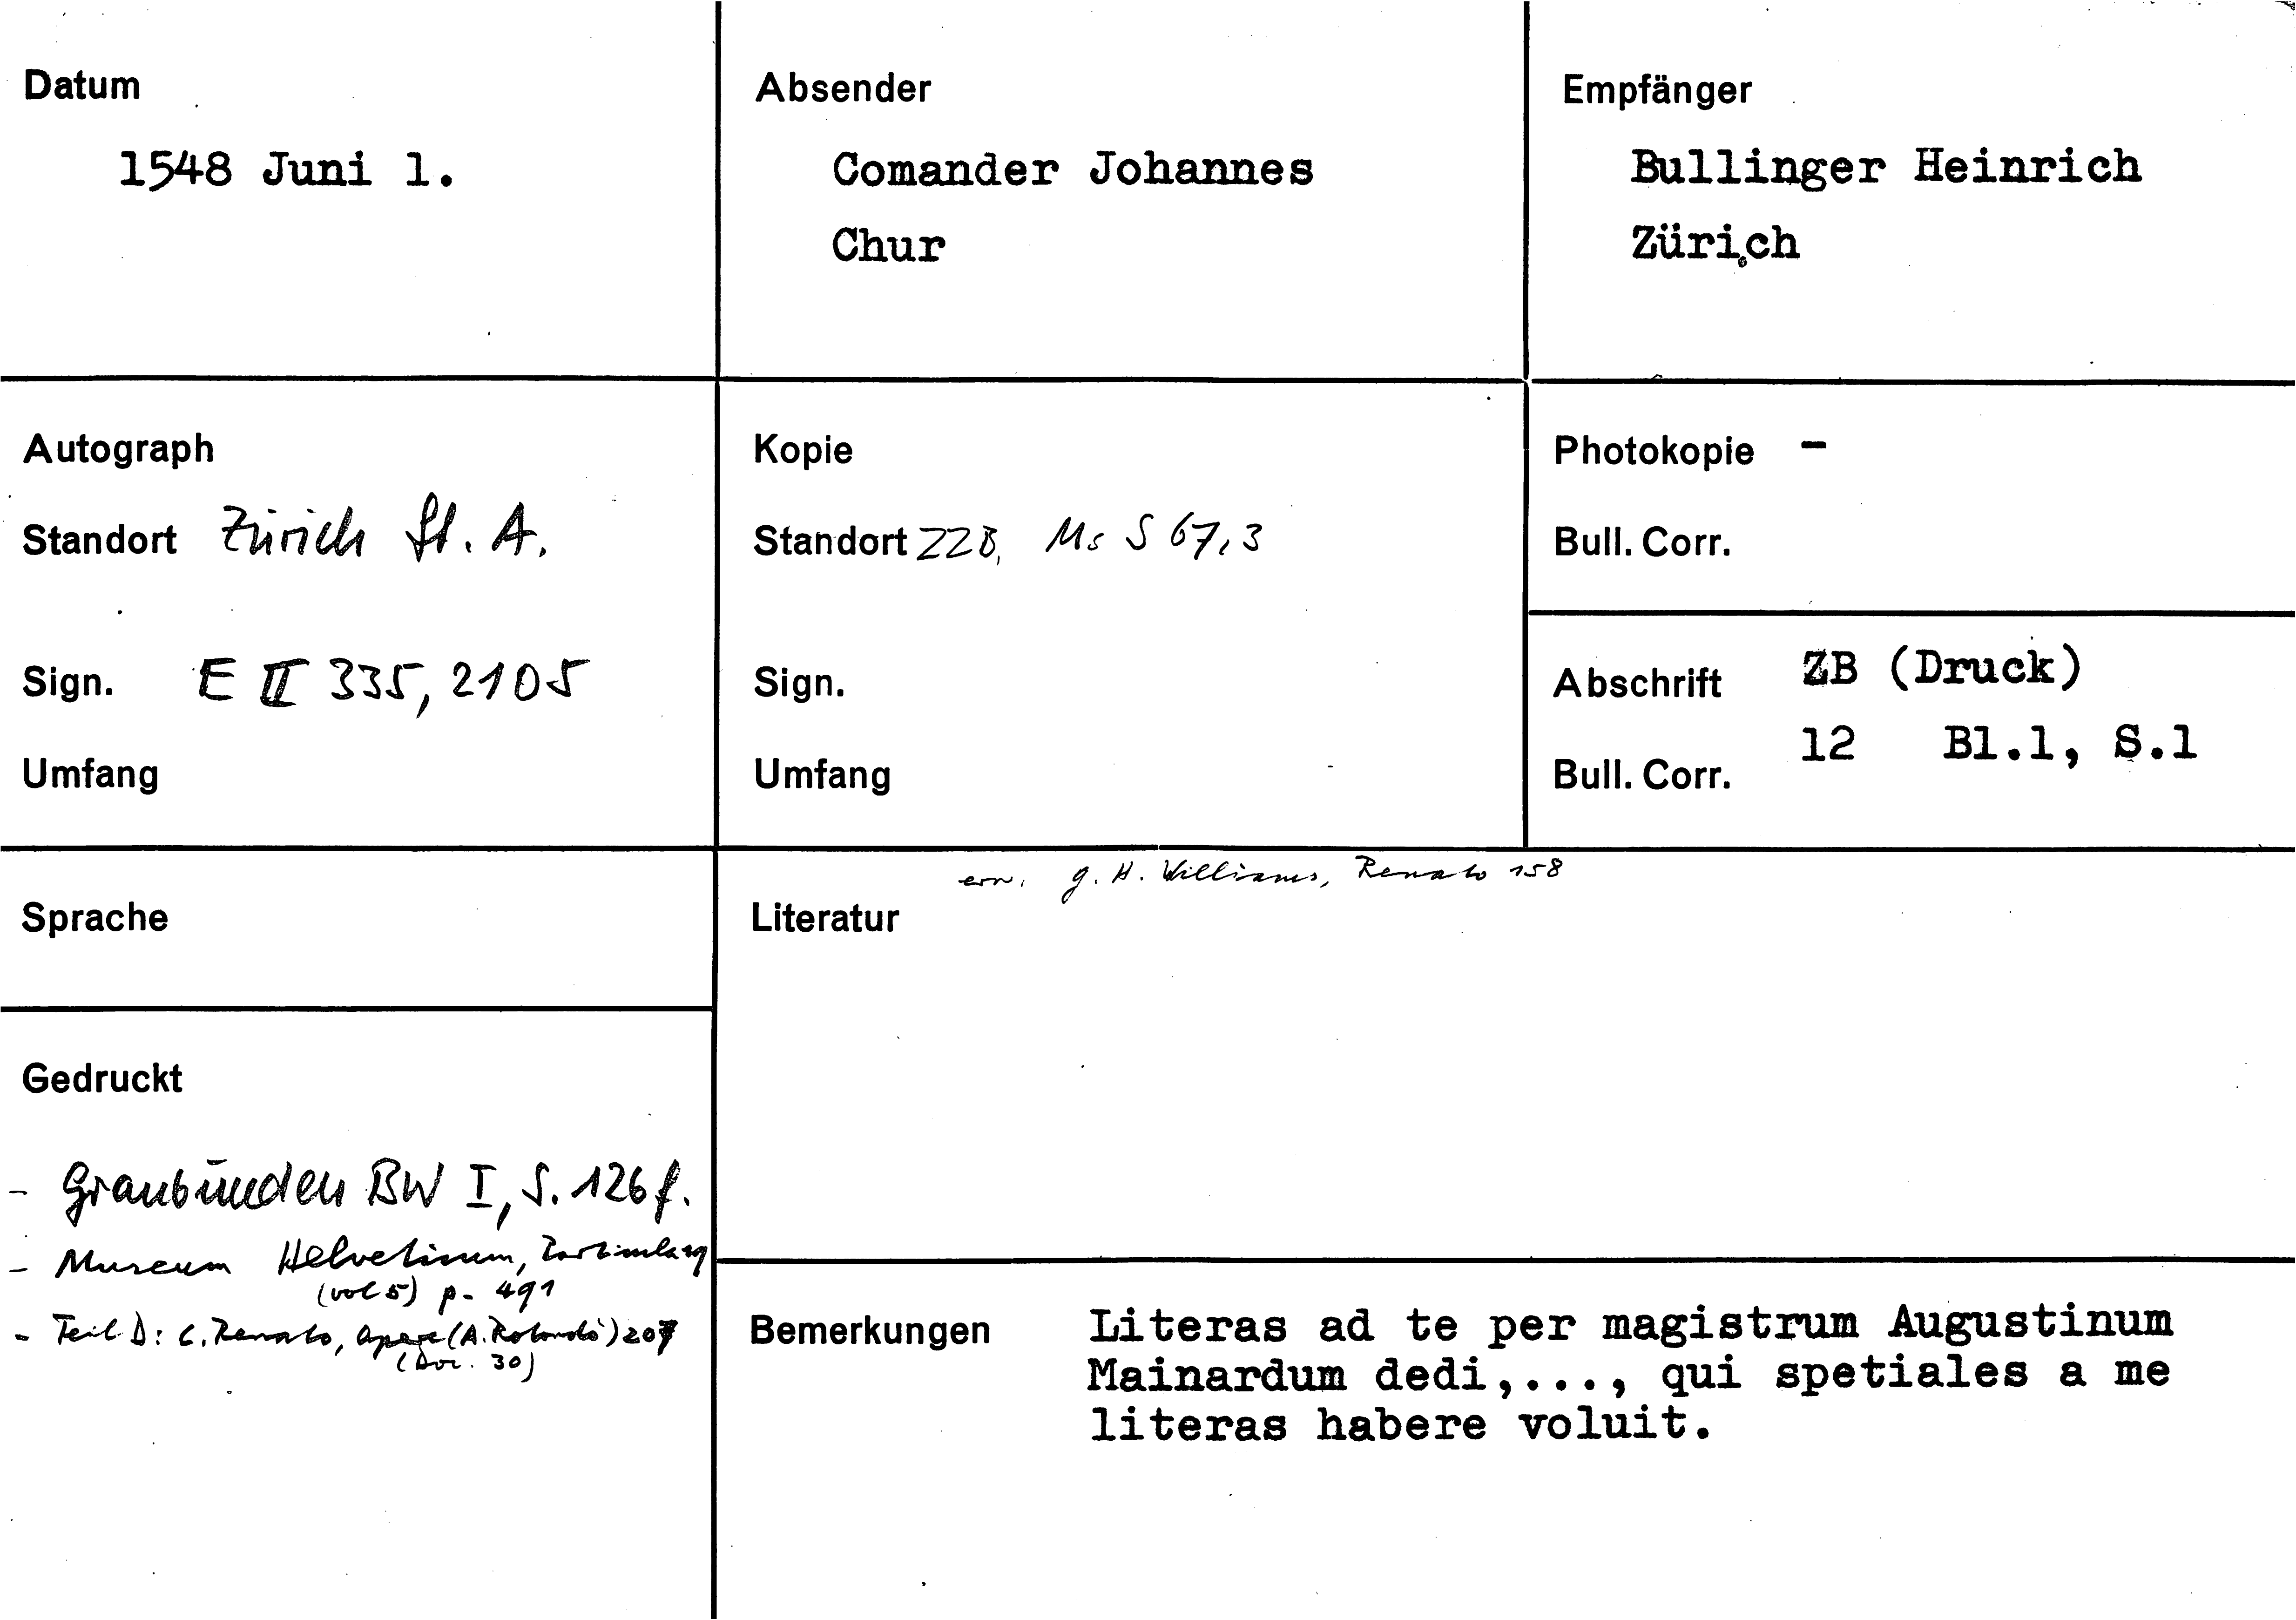 Datum
1548 Juni 1.
Absender
Comander Johannes
Chur
Empfänger
Bullinger Heinrich
Zürich
Autograph
Standort Zürich St. A.
Sign. E II 335, 2105
Umfang
Kopie
Standort ZZB, Ms S 67,3
Sign.
Umfang
Photokopie -
Bull. Corr.
Abschrift ZB (Druck)
12 Bl.1, S.1
Bull. Corr.
Sprache
erw. G. H. Williams, Renato 158
Literatur
Gedruckt
- Graubünden BW I, S. 126 f.
- Museum Helvetinum,
(vol 5) p. 491
- Teil D: C. Renato, Opere (A. Rotondò) 207
(Doc. 30)
Bemerkungen
Literas ad te per magistrum Augustinum
Mainardum dedi,..., qui spetiales a me
literas habere voluit.